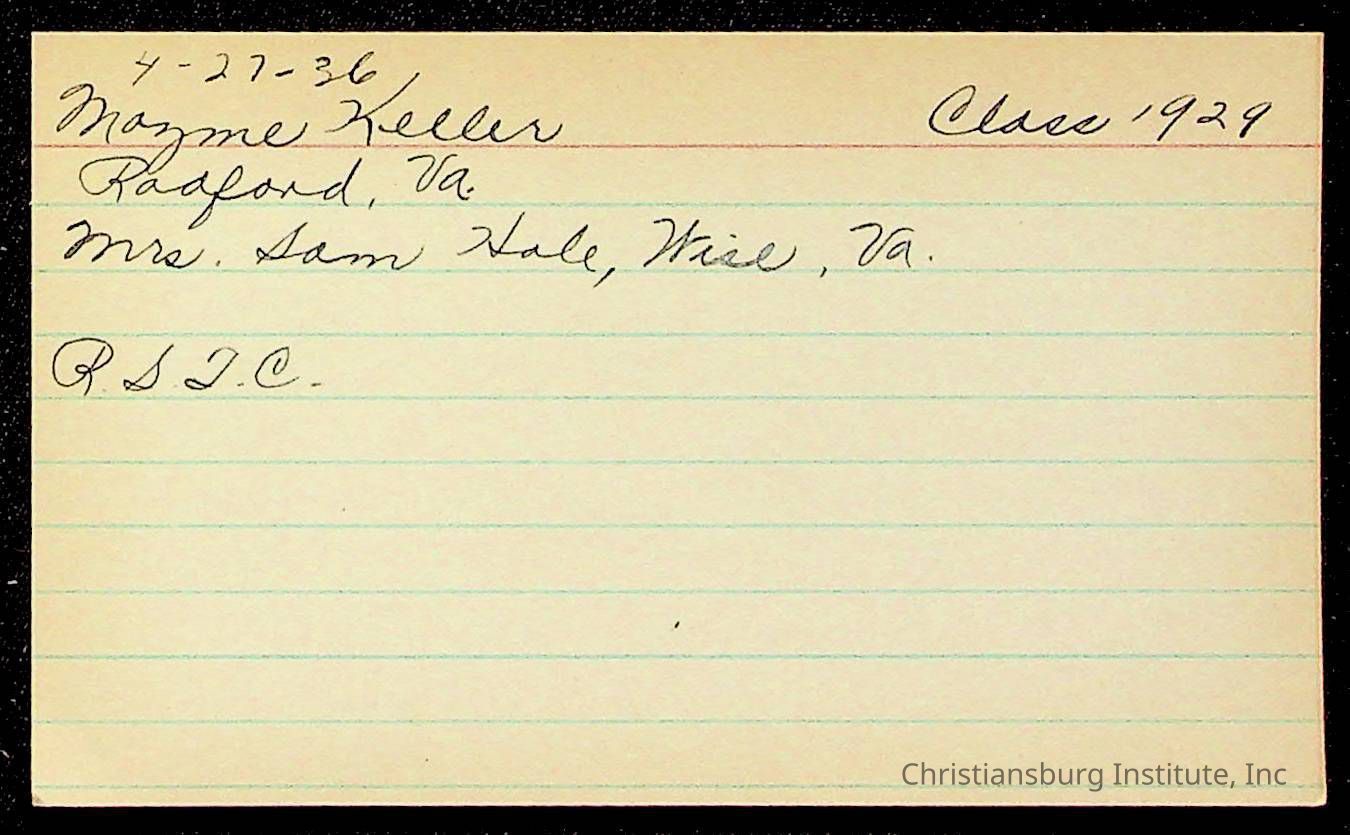 4-27-36
Mayme Keller Class 1929
Radford, Va.
Mrs. Sam Hale, Wise, Va.
R.S.T.C.
Christiansburg Institute, Inc